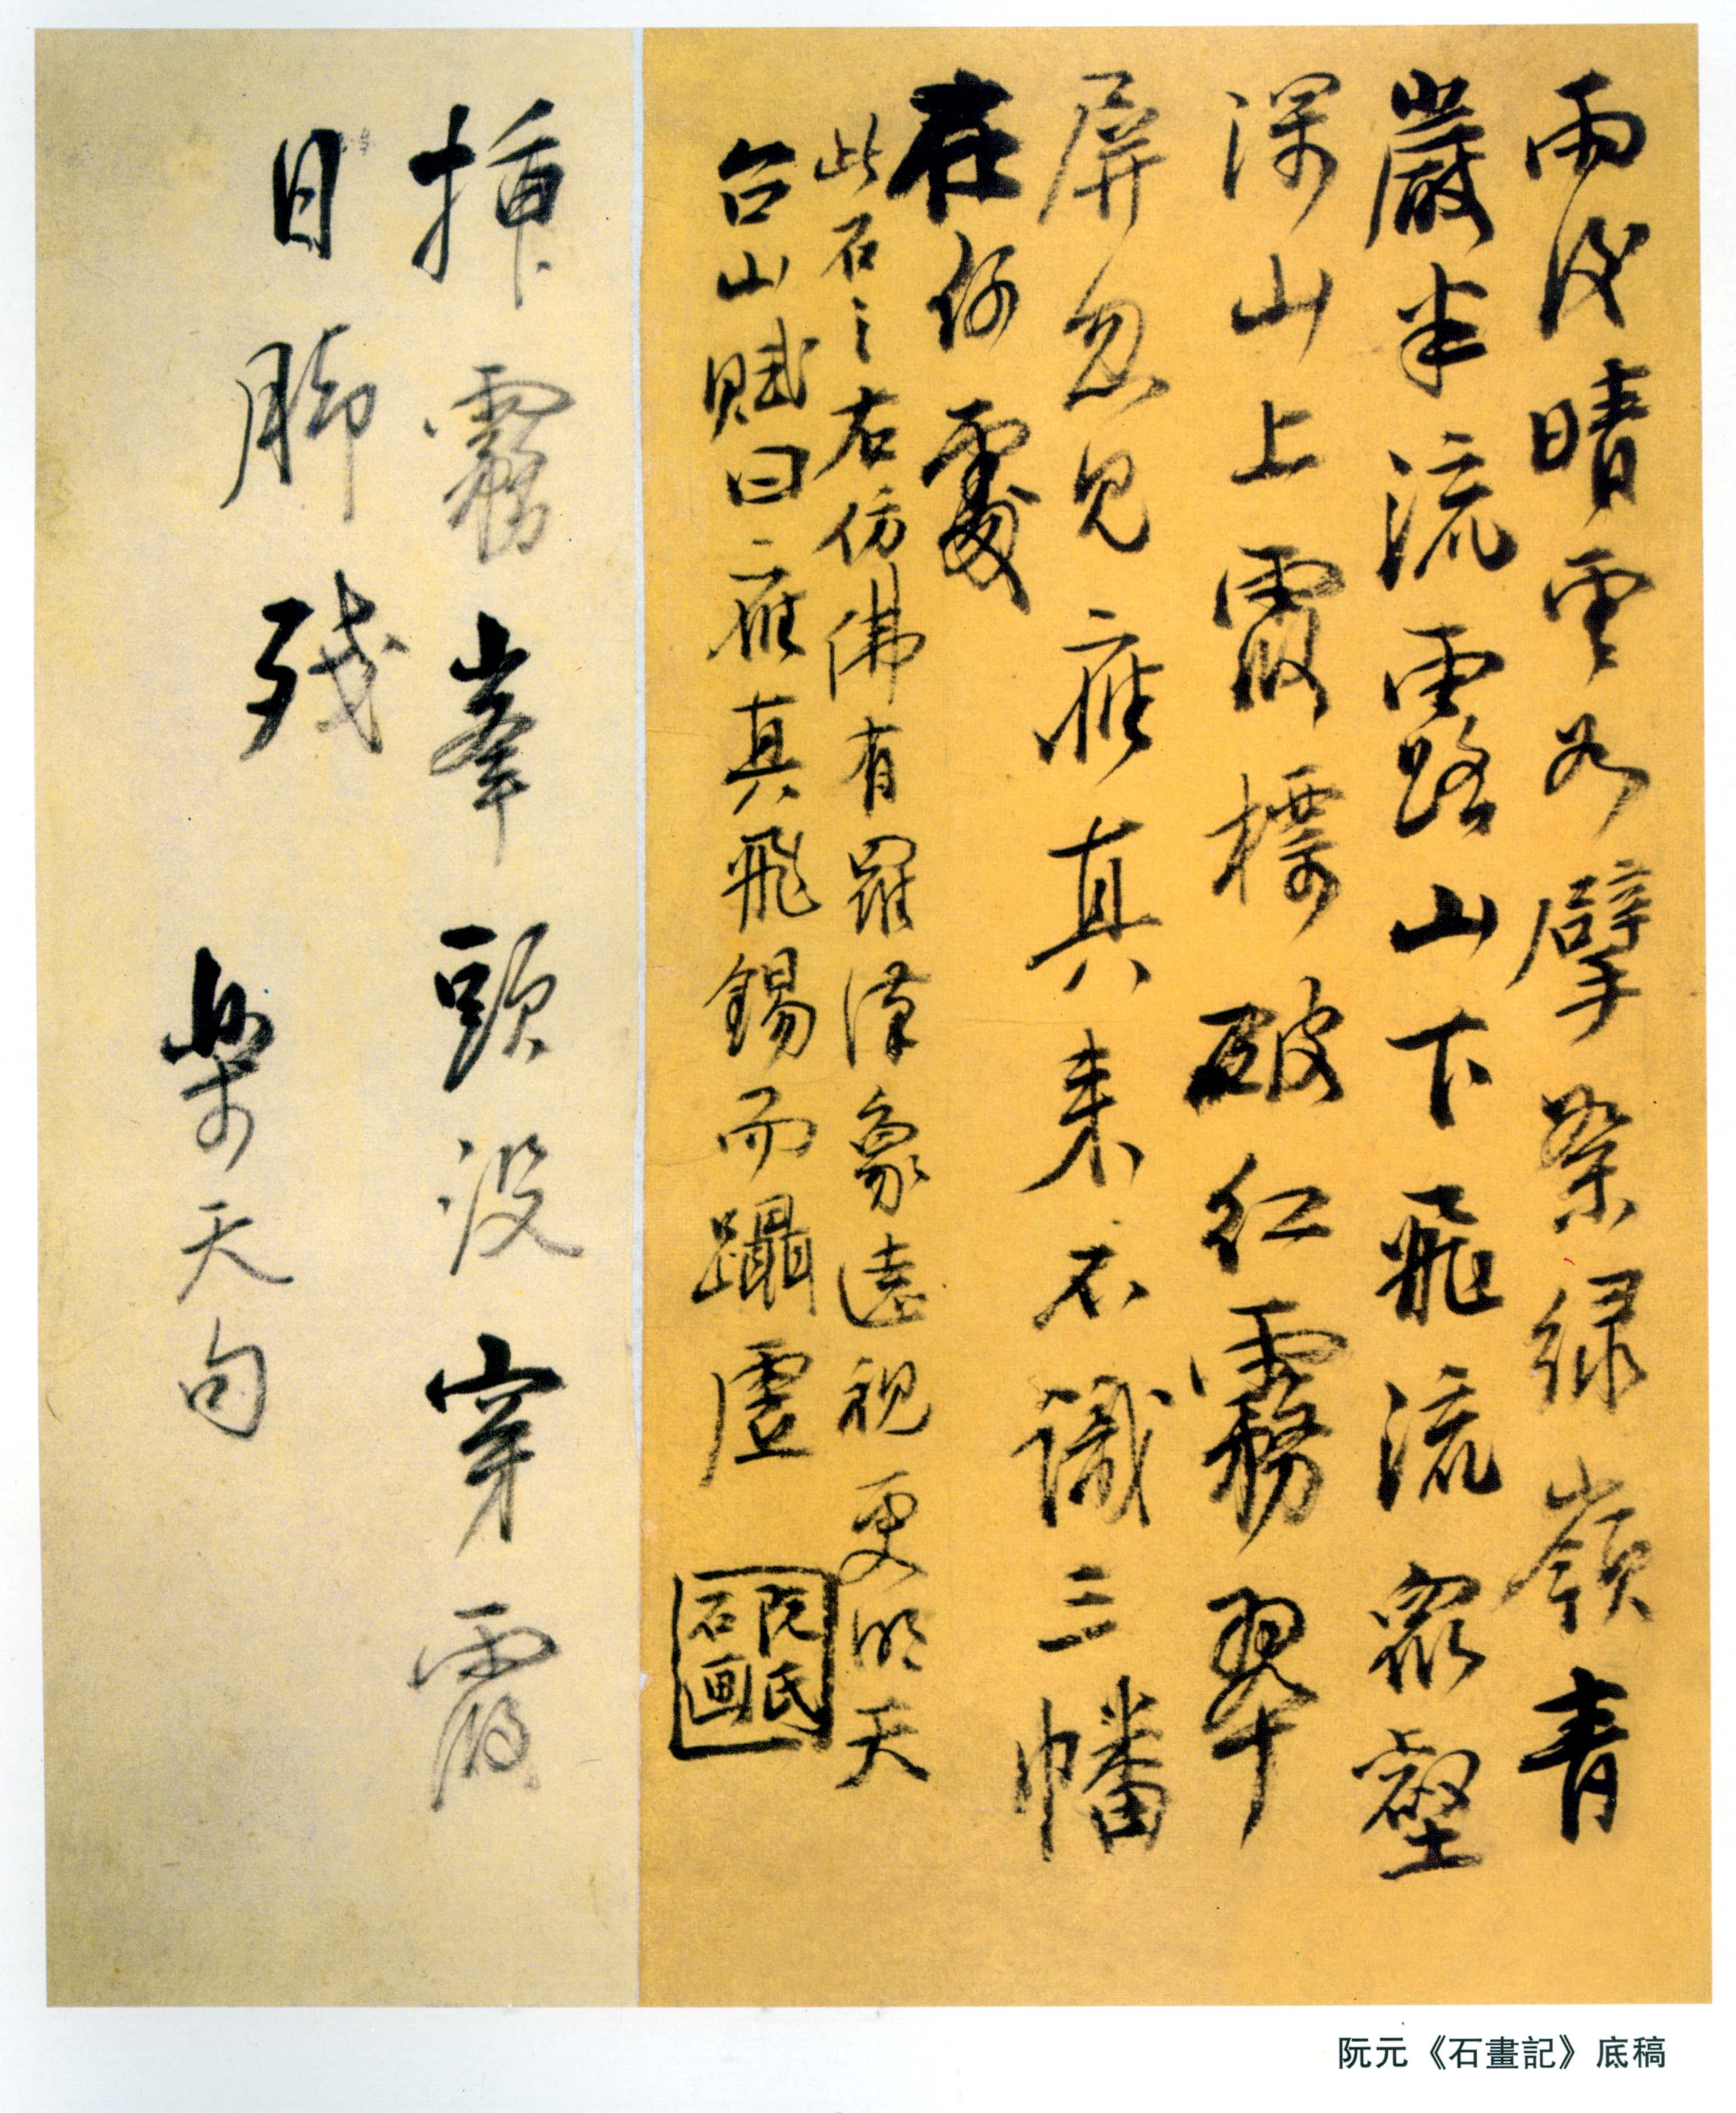 雨後晴雲如擘絮綠嶺青
巖半流雲路山下飛流衆壑
深山上霞標破紅霧翠
屏忽見應真來不識三幡
在何處
此石之右仿佛有羅漢象遠視更明天
台山賦曰應真飛錫而躡虛
阮氏
石画
插霧峯頭没穿霞
日腳殘
樂天句
阮元《石畫記》底稿